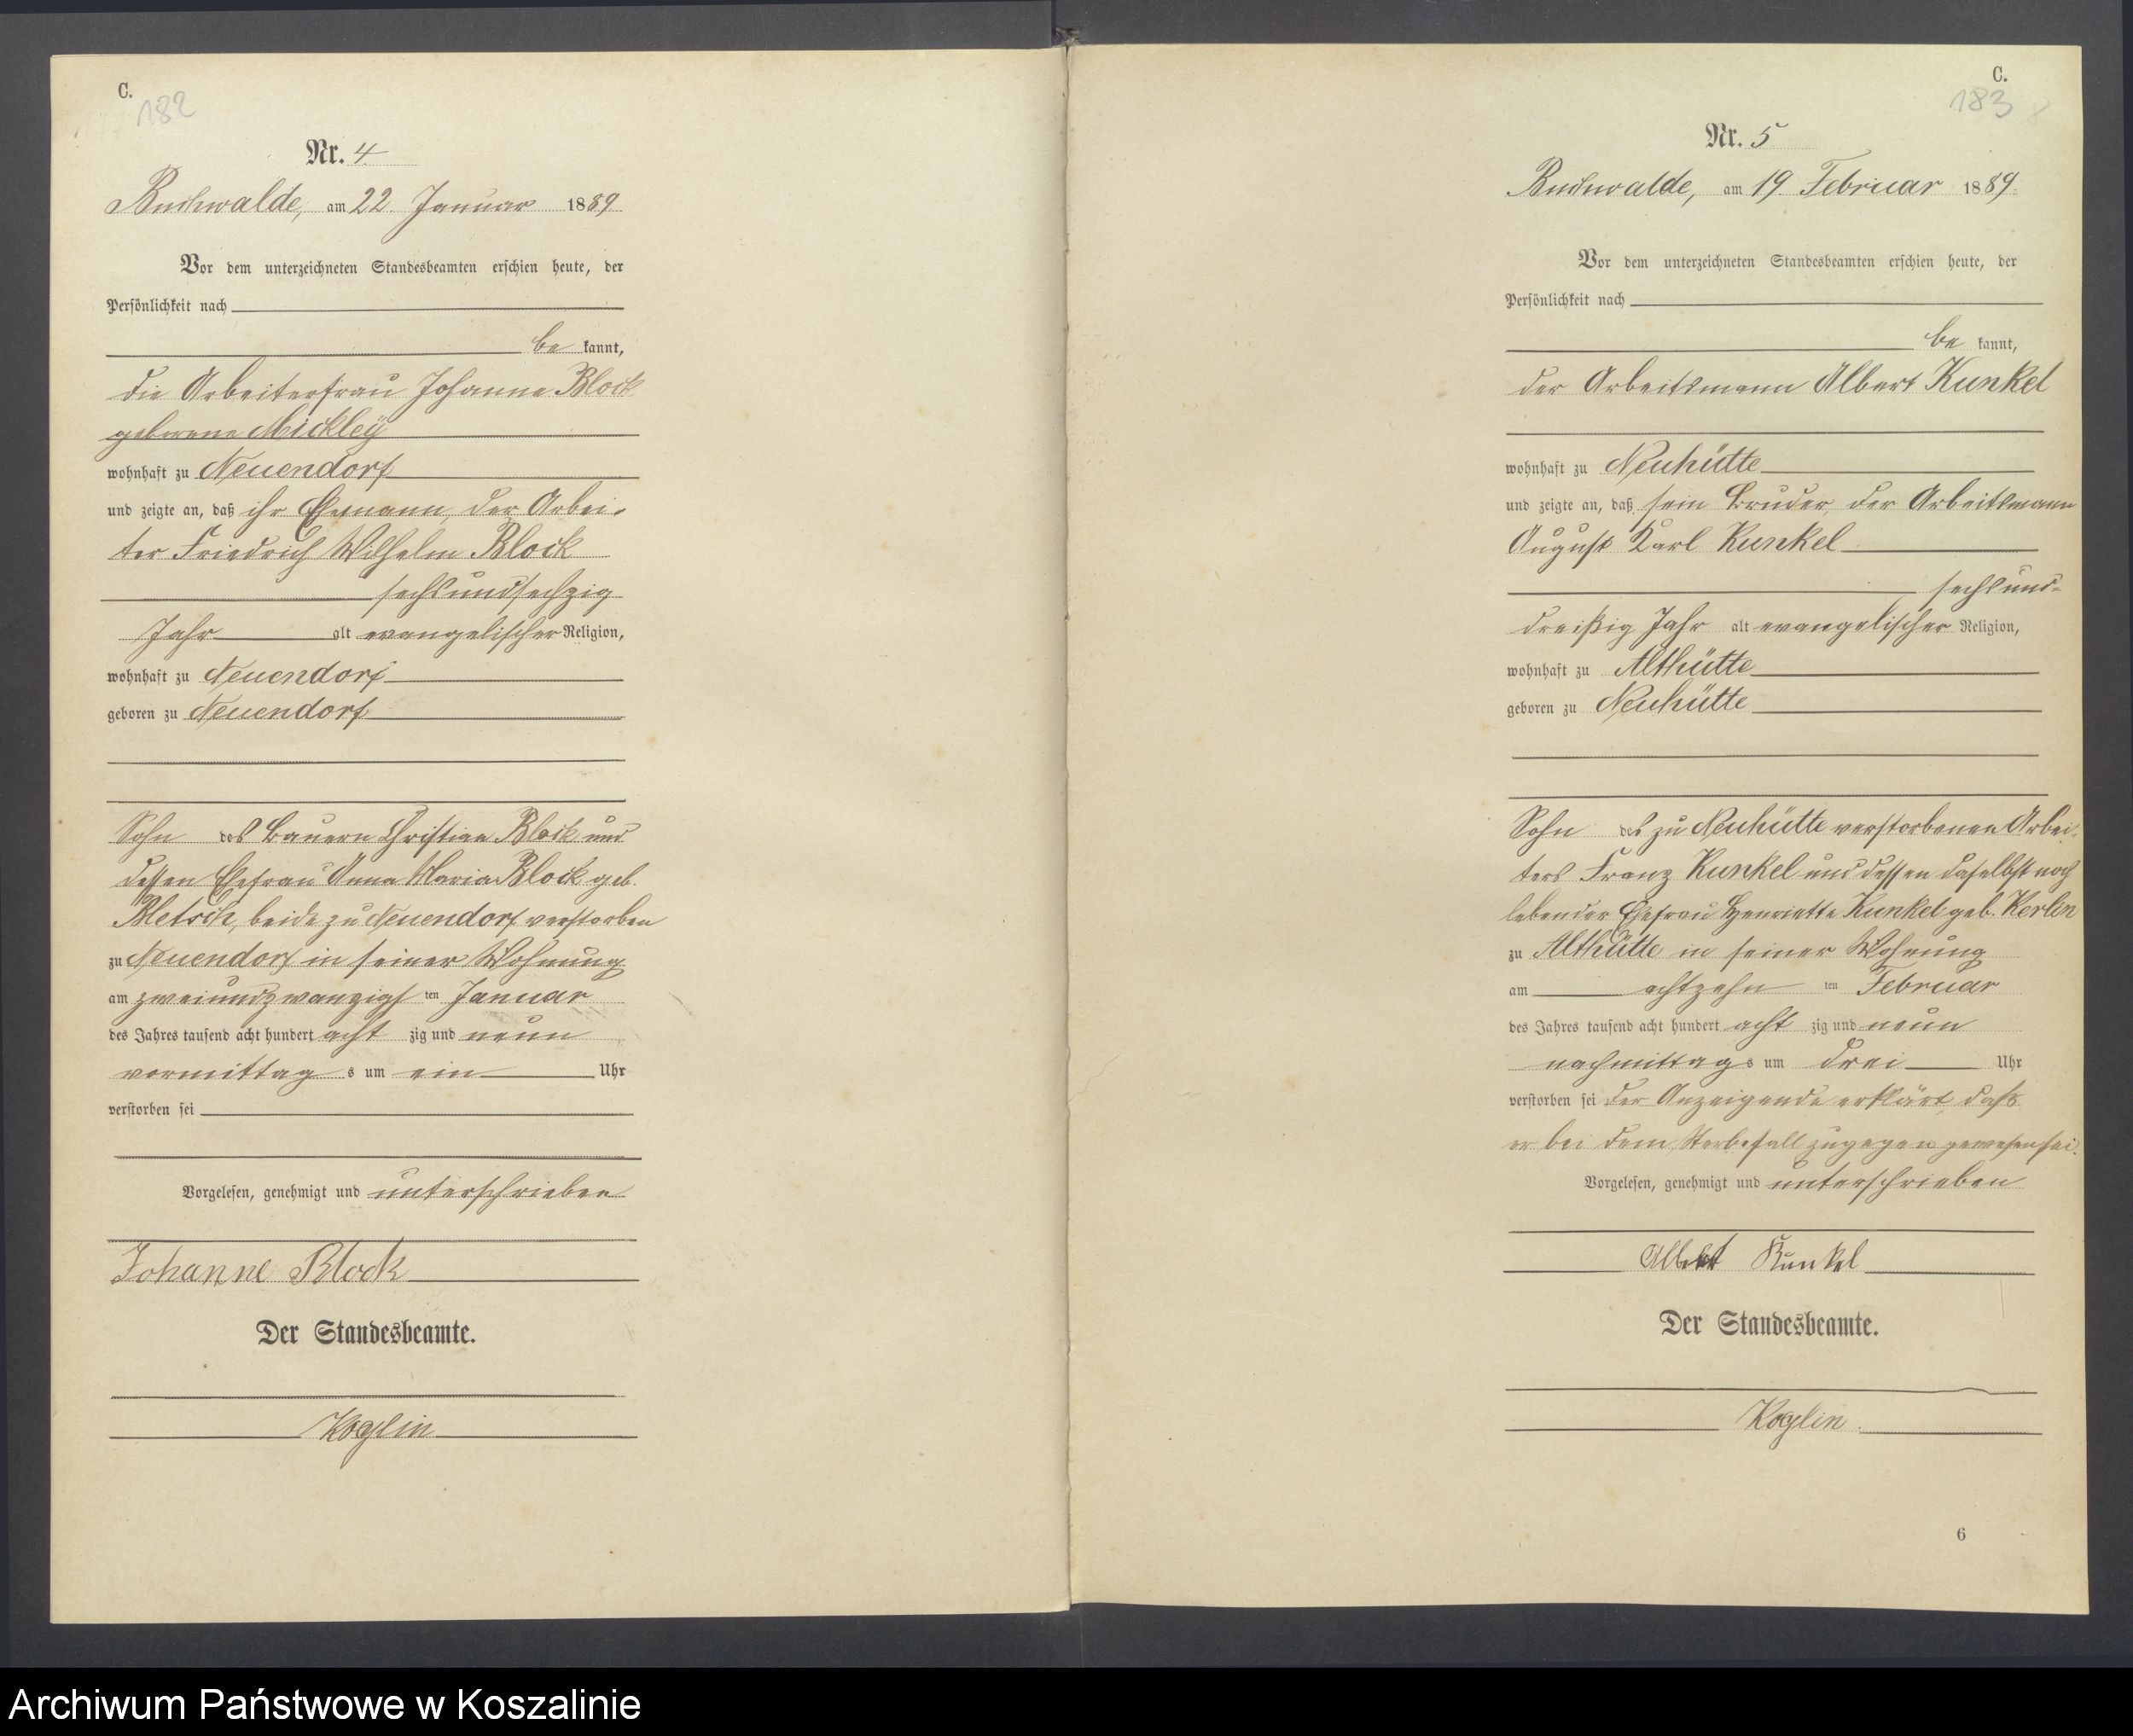 C.
182
Nr. 4
Buchwalde, am 22. Januar 1889
Vor dem unterzeichneten Standesbeamten erschien heute, der
Persönlichkeit nach
be kannt,
die Arbeiterfrau Johanne Block
geborene Mickley
wohnhaft zu Neuendorf
und zeigte an, daß ihr Ehemann, der Arbei-
ter Friedrich Wilhelm Block
sechsundsechzig
Jahr alt evangelischer Religion,
wohnhaft zu Neuendorf
geboren zu Neuendorf
Sohn des Bauern Christian Block und
dessen Ehefrau Anna Maria Block geb.
Bletsch, beide zu Neuendorf verstorben
zu Neuendorf in seiner Wohnung
am zweiundzwanzigs ten Januar
des Jahres tausend acht hundert acht zig und neun
vormittag s um ein Uhr
verstorben sei
Vorgelesen, genehmigt und unterschrieben
Johanne Block
Der Standesbeamte.
Koglin
C.
183
Nr. 5
Buchwalde, am 19. Februar 1889.
Vor dem unterzeichneten Standesbeamten erschien heute, der
Persönlichkeit nach
be kannt,
der Arbeitsmann Albert Kunkel
wohnhaft zu Neuhütte
und zeigte an, daß sein Bruder, der Arbeitsmann
August Karl Kunkel
sechsund-
dreißig Jahr alt evangelischer Religion,
wohnhaft zu Althütte
geboren zu Neuhütte
Sohn des zu Neuhütte verstorbenen Arbei-
ters Franz Kunkel und dessen daselbst noch
lebender Ehefrau Henriette Kunkel geb. Kerlin
zu Althütte in seiner Wohnung
am achtzehn ten Februar
des Jahres tausend acht hundert acht zig und neun
nachmittag s um drei Uhr
verstorben sei der Anzeigende erklärt, daß
er bei dem Sterbefall zugegen gewesen sei.
Vorgelesen, genehmigt und unterschrieben
Albert Kunkel
Der Standesbeamte.
Koglin.
6
Archiwum Państwowe w Koszalinie